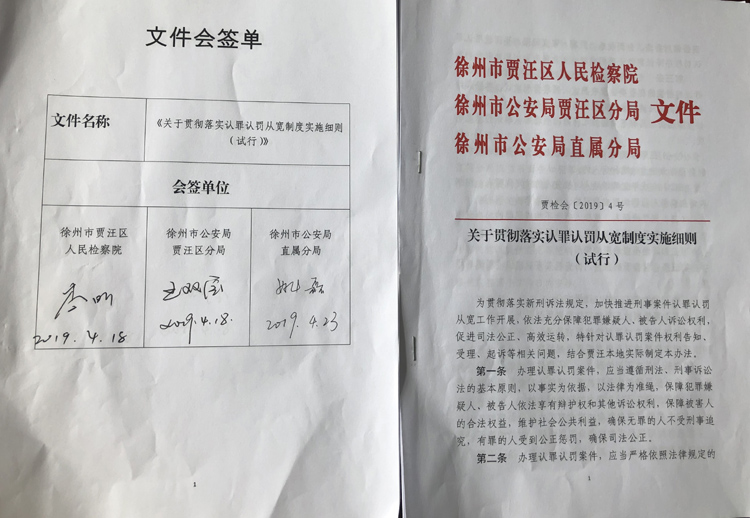 文件会签单
文件名称
《关于贯彻落实认罪认罚从宽制度实施细则
（试行）》
会签单位
徐州市贾汪区
人民检察院
徐州市公安局
贾汪区分局
徐州市公安局
直属分局
2019.4.18
2019.4.18.
2019.4.23
1
徐州市贾汪区人民检察院
徐州市公安局贾汪区分局 文件
徐州市公安局直属分局
贾检会〔2019〕4号
关于贯彻落实认罪认罚从宽制度实施细则
（试行）
为贯彻落实新刑诉法规定，加快推进刑事案件认罪认罚
从宽工作开展，依法充分保障犯罪嫌疑人、被告人诉讼权利，
促进司法公正、高效运转，特针对认罪认罚案件权利告知、
受理、起诉等相关问题，结合贾汪本地实际制定本办法。
第一条 办理认罪认罚案件，应当遵循刑法、刑事诉讼
法的基本原则，以事实为依据，以法律为准绳，保障犯罪嫌
疑人、被告人依法享有辩护权和其他诉讼权利，保障被害人
的合法权益，维护社会公共利益，确保无罪的人不受刑事追
究，有罪的人受到公正惩罚，确保司法公正。
第二条 办理认罪认罚案件，应当严格依照法律规定的
1